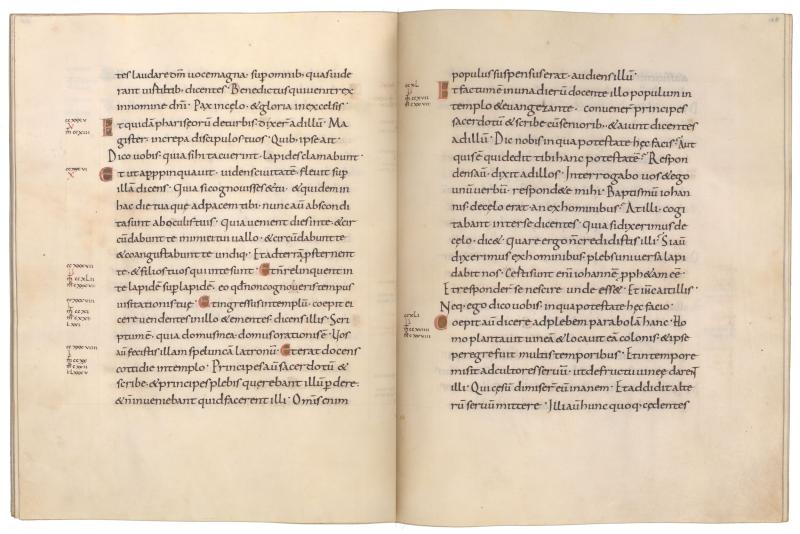 tes laudare dm̄ voce magna · sup omnib; quas uide
rant uirtutib; dicentes · Benedictus qui uenit rex
in nomine dnī · Pax in cęlo · & gloria in excelsis ·
Et quidā pharisęorū de turbis · dixerȧ ad illū · Ma
gister · increpa discipulos tuos · Quib; ipse ait ·
Dico uobis · quia si hi tacuerint · lapides clamabunt ·
Et ut appropinquauit · uidens ciuitatē · fleuit sup
illā dicens · Quia si cognouisses & tu · & quidem in
hac die tua que ad pacem tibi · nunc aū abscondi
ta sunt ab oculis tuis · Quia uenient dies in te · & cir
cūdabunt te inimici tui uallo · & circūdabunt te
& coangustabunt te undiq; · Et ad terrā psternent
te · & filios tuos qui in te sunt · Et n̄ relinquent in
te lapidē sup lapidē · eo qd̄ non cognoueris tempus
uisitationis tuę · Et ingressus in templū · coepit ei
cere uendentes in illo & ementes · dicens illis · Scri
ptum ē · quia domus mea · domus orationis ē · Uos
aū fecistis illam speluncā latronū · Et erat docens
cottidie in templo · Principes aū sacerdotū &
scribę · & principes plebis querebant illū pdere ·
& n̄ inueniebant quid facerent illi · Omīs enim
populus suspensus erat · audiens illū ·
Et factum ē in una dierū docente illo populum in
templo & euangezante · conuenerꝛ principes
sacerdotū & scribę cū senioribȝ · & aiunt dicentes
ad illū · Dic nobis in qua potestate hęc facis · Aut
quis ē qui dedit tibi hanc potestatē · Respon
dens aū · dixit ad illos · Interrogabo uos & ego
unū uerbū · responde& mihi · Baptismū iohan
nis de cęlo erat · an ex hominibus · At illi · cogi
tabant inter se dicentes · Quia si dixerimus de
cęlo · dic& · Quare ergo n̄ credidistis illi · Si aū
dixerimus ex hominibus · plebs uniuersa lapi
dabit nos · Certi sunt enī iohannē pph&am eē ·
Et responderꝛ se nescire unde ess& · Et ihc̄ ait illis ·
Neq; ego dico uobis · in qua potestate hęc facio ·
Coepit aū dicere ad plebem parabolā hanc · Ho
mo plantauit uineā & locauit eā colonis · & ipse
peregre fuit multis temporibus · Et in tempore
misit ad cultores seruū · ut de fructu uineę darent
illi · Qui cęsū dimiserꝛ eū inanem · Et addidit alte
rū seruū mittere · Illi aū hunc quoq; cędentes